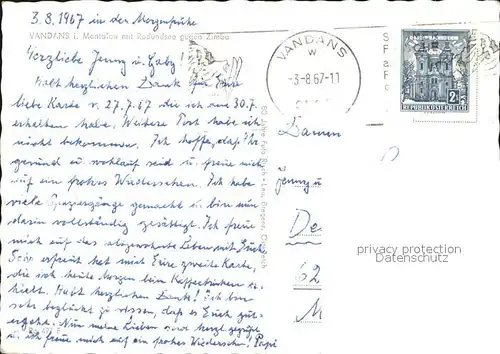 3.8.1967 in der Morgenfrühe
VANDANS i. Montafon mit Rodundsee gegen Zimba
Herzliebe Jenny u. Gaby!
Habt herzlichen Dank für Eure
liebe Karte v. 27.7.67 die ich am 30.7.
erhalten habe. Weitere Post habe ich
nicht bekommen. Ich hoffe, daß Ihr
gesund u. wohlauf seid u. freue mich
auf ein frohes Wiedersehen. Ich habe
viele Spaziergänge gemacht u. bin nun
darin vollständig gesättigt. Ich freue
mich auf das abgewohnte Leben mit Euch.
Sehr erfreut hat mich Eure zweite Karte,
die ich heute Morgen beim Kaffeetrinken er-
hielt. Habt herzlichen Dank! Ich bin
sehr beglückt zu wissen, daß es Euch gut
geht. Nun meine Lieben seid herzl. gegrüßt
u. ich freue mich auf ein frohes Wiedersehen! Papi
VANDANS
W
-3-8.67-11
S
P
a
F
REPUBLIK ÖSTERREICH
2
Damen
Jenny u
De
62
M
privacy protection
Datenschutz